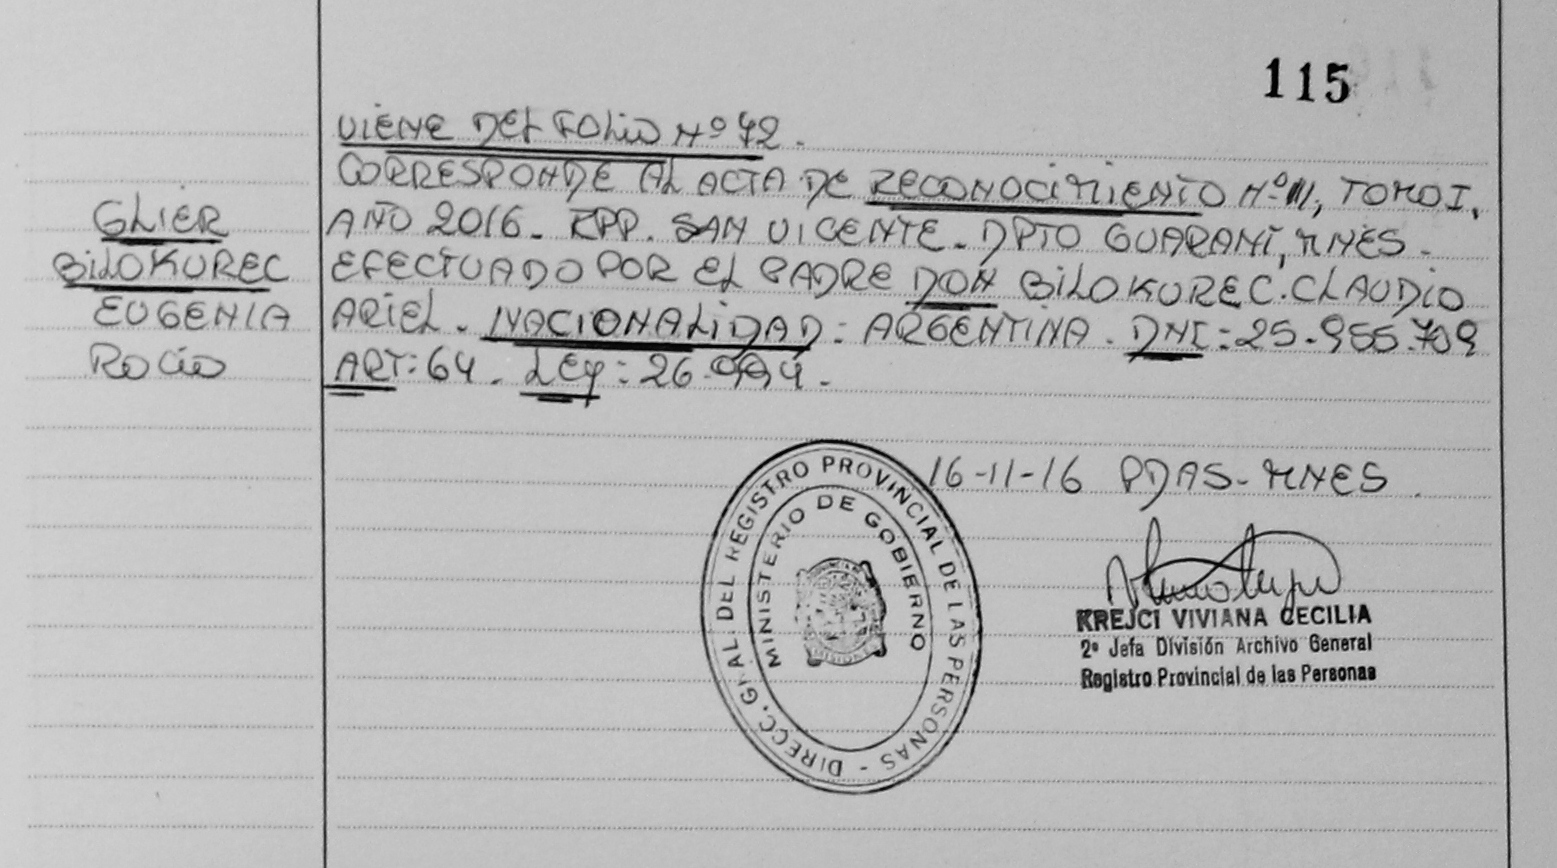 115
VIENE DEL FOLIO Nº 42.
CORRESPONDE AL ACTA DE RECONOCIMIENTO Nº 111, TOMO I,
GLIER
AÑO 2016. RPP. SAN VICENTE. DPTO GUARANÍ, MNES.
BILOKUREC
EFECTUADO POR EL PADRE DON BILOKUREC. CLAUDIO
EUGENIA
ARIEL. NACIONALIDAD: ARGENTINA. DNI: 25.955.709
ROCIO
ART: 64. LEY: 26.994.
16-11-16 PDAS-MNES.
DIRECC. GRAL. DEL REGISTRO PROVINCIAL DE LAS PERSONAS -
MINISTERIO DE GOBIERNO
MISIONES
KREJCI VIVIANA CECILIA
2º Jefa División Archivo General
Registro Provincial de las Personas